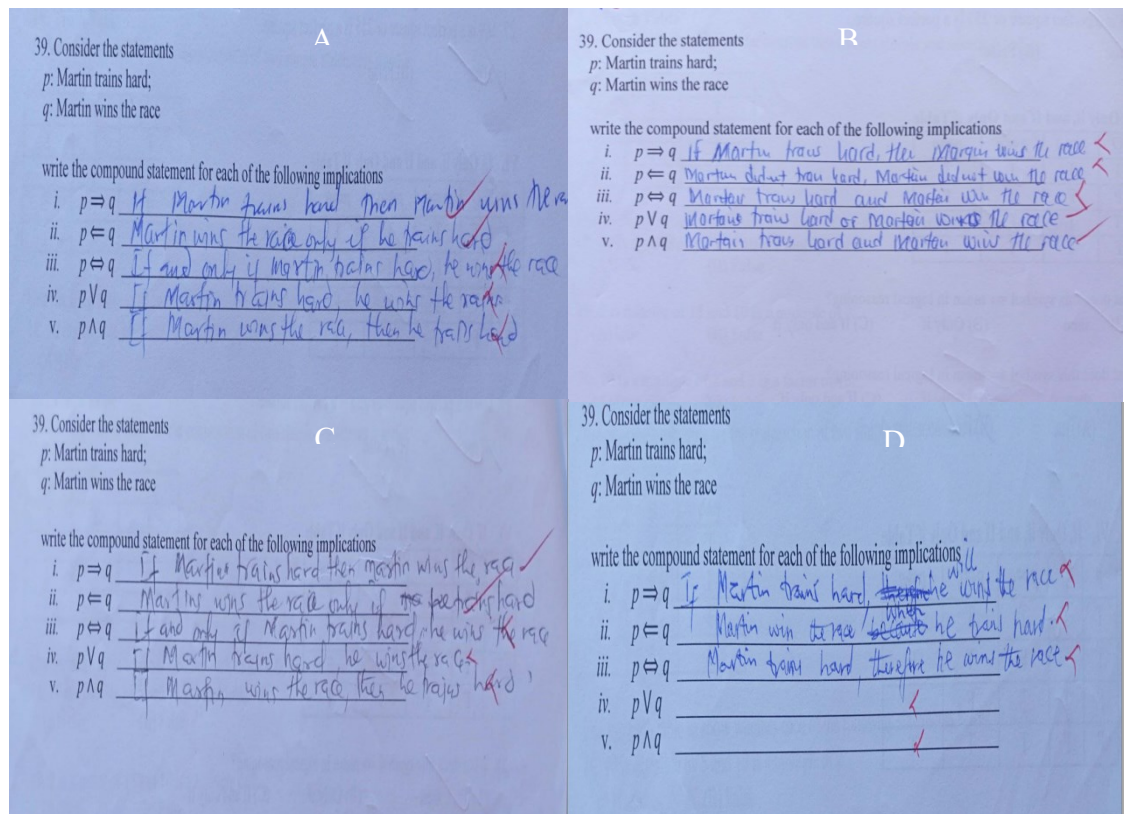 A
39. Consider the statements
p: Martin trains hard;
q: Martin wins the race
write the compound statement for each of the following implications
i. p⇒q If Martin trains hard then Martin wins the ra
ii. p⇐q Martin wins the race only if he trains hard
iii. p⇔q If and only if martin trains hard, he wins the race
iv. p∨q If Martin trains hard, he wins the
v. p∧q If Martin wins the race, then he trains hard
B
39. Consider the statements
p: Martin trains hard;
q: Martin wins the race
write the compound statement for each of the following implications
i. p⇒q If Martin trains hard, then wins the race
ii. p⇐q Martin didnt train hard, Martin didnt win the race
iii. p⇔q hard and Martin win the race
iv. p∨q hard or the race
v. p∧q hard and wins the race
C
39. Consider the statements
p: Martin trains hard;
q: Martin wins the race
write the compound statement for each of the following implications
i. p⇒q If Martins trains hard then martin wins the race
ii. p⇐q Martins wins the race only if he trains hard
iii. p⇔q if and only if Martin trains hard, he wins the race
iv. p∨q If Martin trains hard he wins the race
v. p∧q If Martin wins the race then he trains hard
D
39. Consider the statements
p: Martin trains hard;
q: Martin wins the race
write the compound statement for each of the following implications
i. p⇒q If Martin trains hard, he will wins the race
ii. p⇐q Martin win the race when he trains hard.
iii. p⇔q Martin trains hard, therefore he wins the race
iv. p∨q
v. p∧q